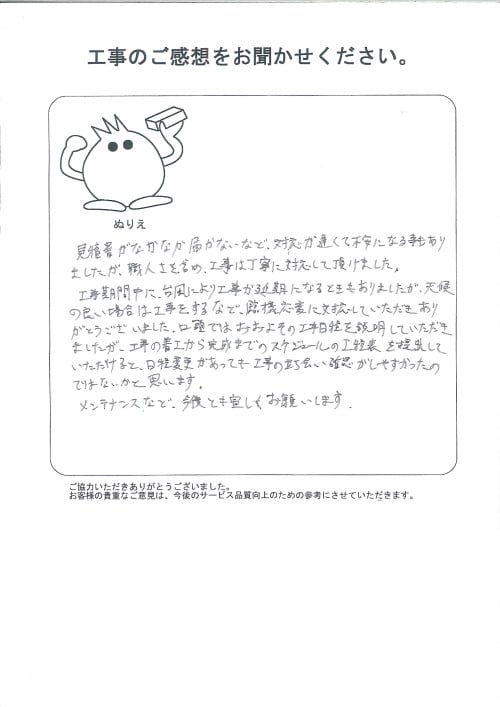 工事のご感想をお聞かせください。
ぬりえ
見積書がなかなか届かないなど、対応が遅くて不安になる事もあり
ましたが、職人さを含め、工事は丁寧に対応して頂けました。
工事期間中に、台風により工事が延期になるときもありましたが、天候
の良い場合は工事をするなど、臨機応変に対応していただきあり
がとうございました。口頭ではおおよその工事日程を説明していただき
ましたが、工事の着工から完成までのスケジュールの工程表を提出して
いただけると、日程変更があっても工事の立ち会い確認がしやすかったの
ではないかと思います。
メンテナンスなど、今後とも宜しくお願いします。
ご協力いただきありがとうございました。
お客様の貴重なご意見は、今後のサービス品質向上のための参考にさせていただきます。